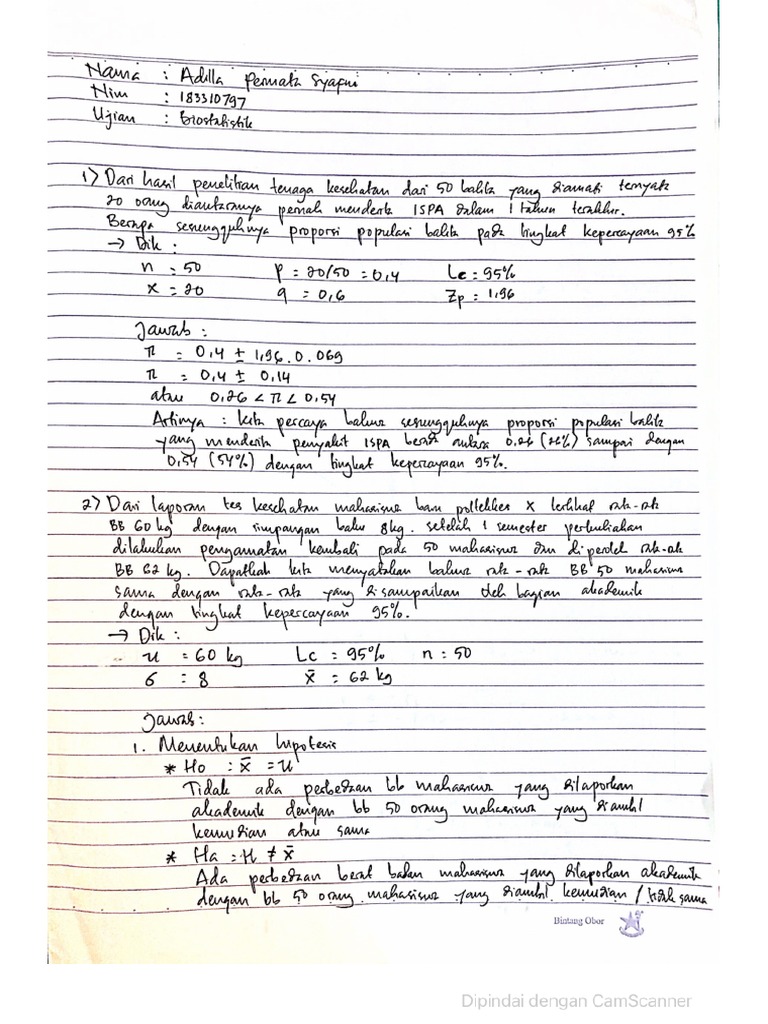 Nama : Adilla Permata Syafni
Nim : 183310797
Ujian : Biostatistik
1) Dari hasil penelitian tenaga kesehatan dari 50 balita yang diamati ternyata
20 orang diantaranya pernah menderita ISPA dalam 1 tahun terakhir.
Berapa sesungguhnya proporsi populasi balita pada tingkat kepercayaan 95%
→ Dik :
n = 50 P = 20/50 = 0,4 Lc = 95%
x = 20 q = 0,6 Zp = 1,96
Jawab :
π = 0,4 ± 1,96 . 0.069
π = 0,4 ± 0,14
atau 0,26 < π < 0,54
Artinya : kita percaya bahwa sesungguhnya proporsi populasi balita
yang menderita penyakit ISPA berada antara 0,26 (26%) sampai dengan
0,54 (54%) dengan tingkat kepercayaan 95%.
2) Dari laporan tes kesehatan mahasiswa baru poltekkes X terlihat rata-rata
BB 60 kg dengan simpangan baku 8kg. setelah 1 semester perkuliahan
dilakukan pengamatan kembali pada 50 mahasiswa dan diperoleh rata-rata
BB 62 kg. Dapatkah kita menyatakan bahwa rata-rata BB 50 mahasiswa
sama dengan rata-rata yang disampaikan oleh bagian akademik
dengan tingkat kepercayaan 95%.
→ Dik :
u = 60 kg Lc = 95% n : 50
σ : 8 x̄ = 62 kg
Jawab :
1. Menentukan hipotesis
* Ho : x̄ = u
Tidak ada perbedaan bb mahasiswa yang dilaporkan
akademik dengan bb 50 orang mahasiswa yang diambil
kemudian atau sama
* Ha : u ≠ x̄
Ada perbedaan berat badan mahasiswa yang dilaporkan akademik
dengan bb 50 orang mahasiswa yang diambil kemudian / tidak sama
Bintang Obor
Dipindai dengan CamScanner